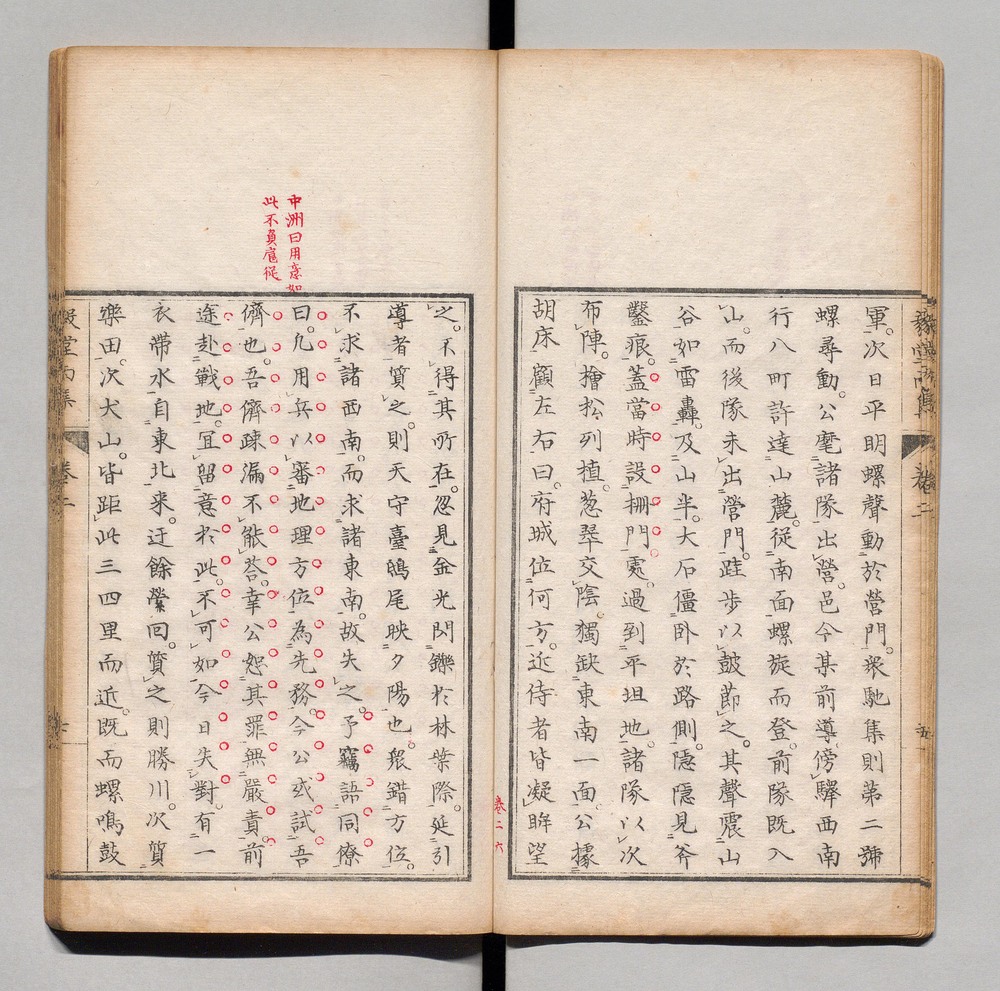 軍。次日平明螺聲動於營門。衆馳集則第二號
螺尋動。公麾諸隊出營。邑令某前導。傍驛西南
行八町許達山麓。從南面螺旋而登。前隊既入
山。而後隊未出營門。跬步以鼓節之。其聲震山
谷如雷轟。及山半。大石僵卧於路側。隱隱見斧
鑿痕。蓋當時設柵門處。過到平坦地。諸隊以次
布陣。檜松列植。葱翠交陰。獨缺東南一面。公據
胡床。顧左右曰。府城位何方。近侍者皆凝眸望
卷二 六
之。不得其所在。忽見金光閃鑠於林葉際。延引
導者質之。則天守臺鴟尾映夕陽也。衆錯方位。
不求諸西南。而求諸東南。故失之。予竊語同僚
曰。凡用兵以審地理方位為先務。今公或試吾
儕也。吾儕疎漏不能荅。幸公恕其罪無嚴責。前
途赴戰地。宜留意於此。不可如今日失對。有一
衣帶水自東北来。迂餘縈回。質之則勝川。次質
樂田。次犬山。皆距此三四里而近。既而螺鳴鼓
中洲曰用意如
此不負扈從
卷二